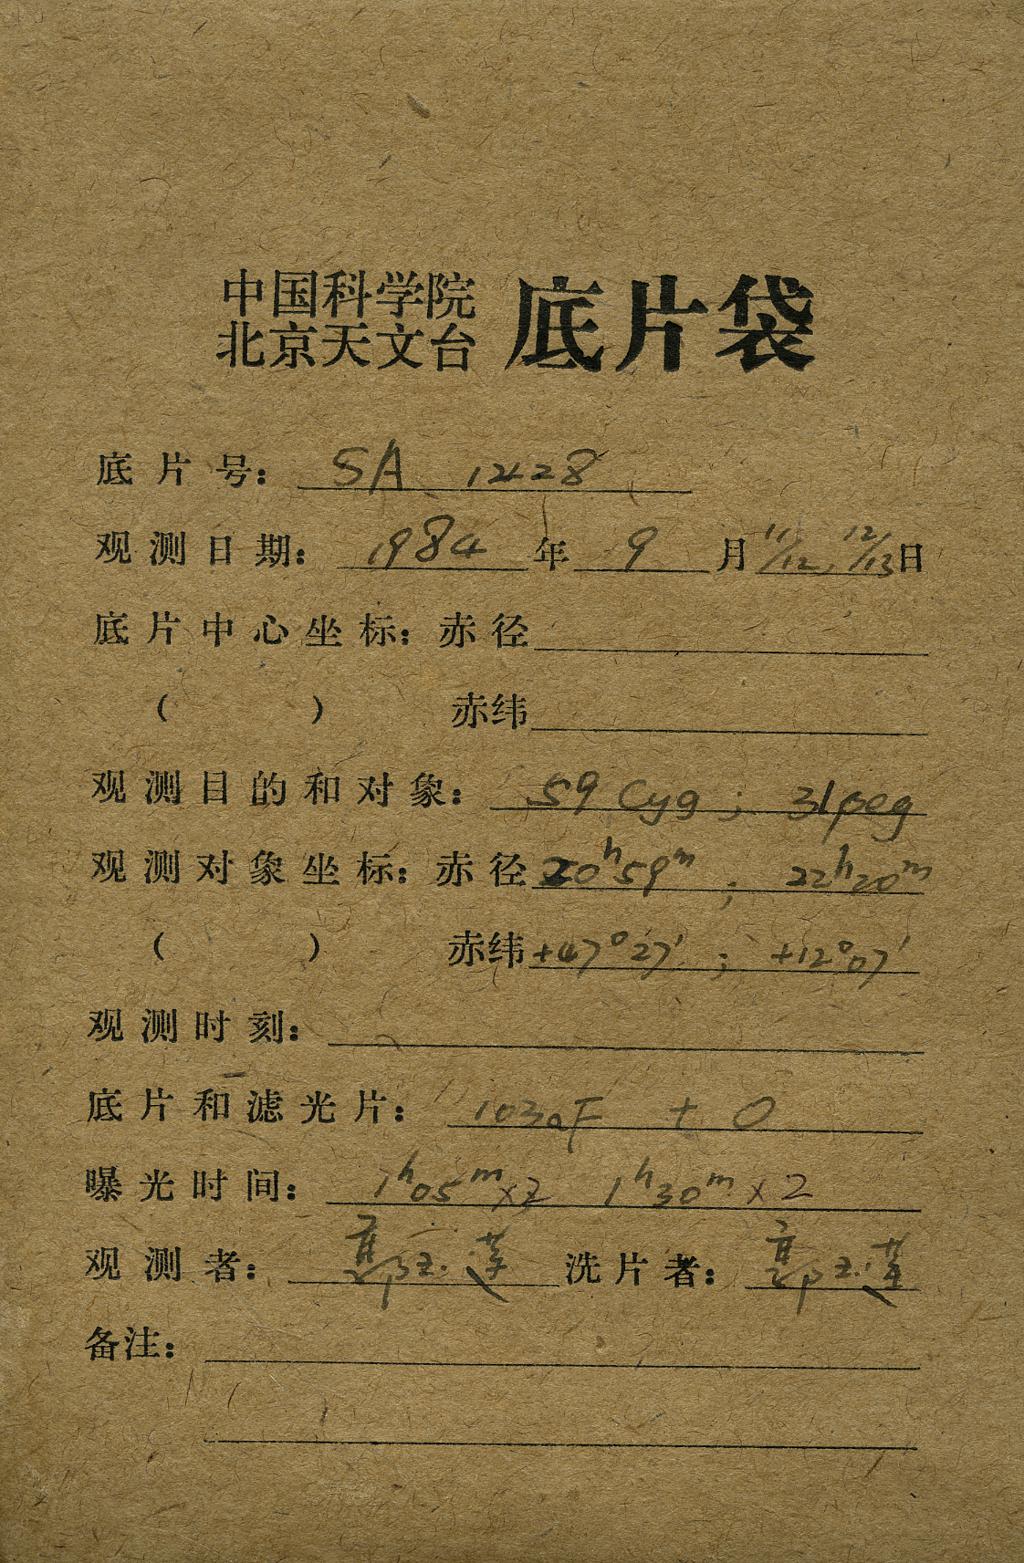 中国科学院
北京天文台 底片袋
底片号: SA 1428
观测日期: 1984 年 9 月 11/12, 12/13 日
底片中心坐标: 赤径
( ) 赤纬
观测目的和对象: 59 Cyg ; 31 peg
观测对象坐标: 赤径 20ʰ59ᵐ ; 22ʰ20ᵐ
( ) 赤纬 +47°27′ ; +12°07′
观测时刻:
底片和滤光片: 103aF + O
曝光时间: 1ʰ05ᵐ×2 1ʰ30ᵐ×2
观测者: 郭玉莲 洗片者: 郭玉莲
备注: